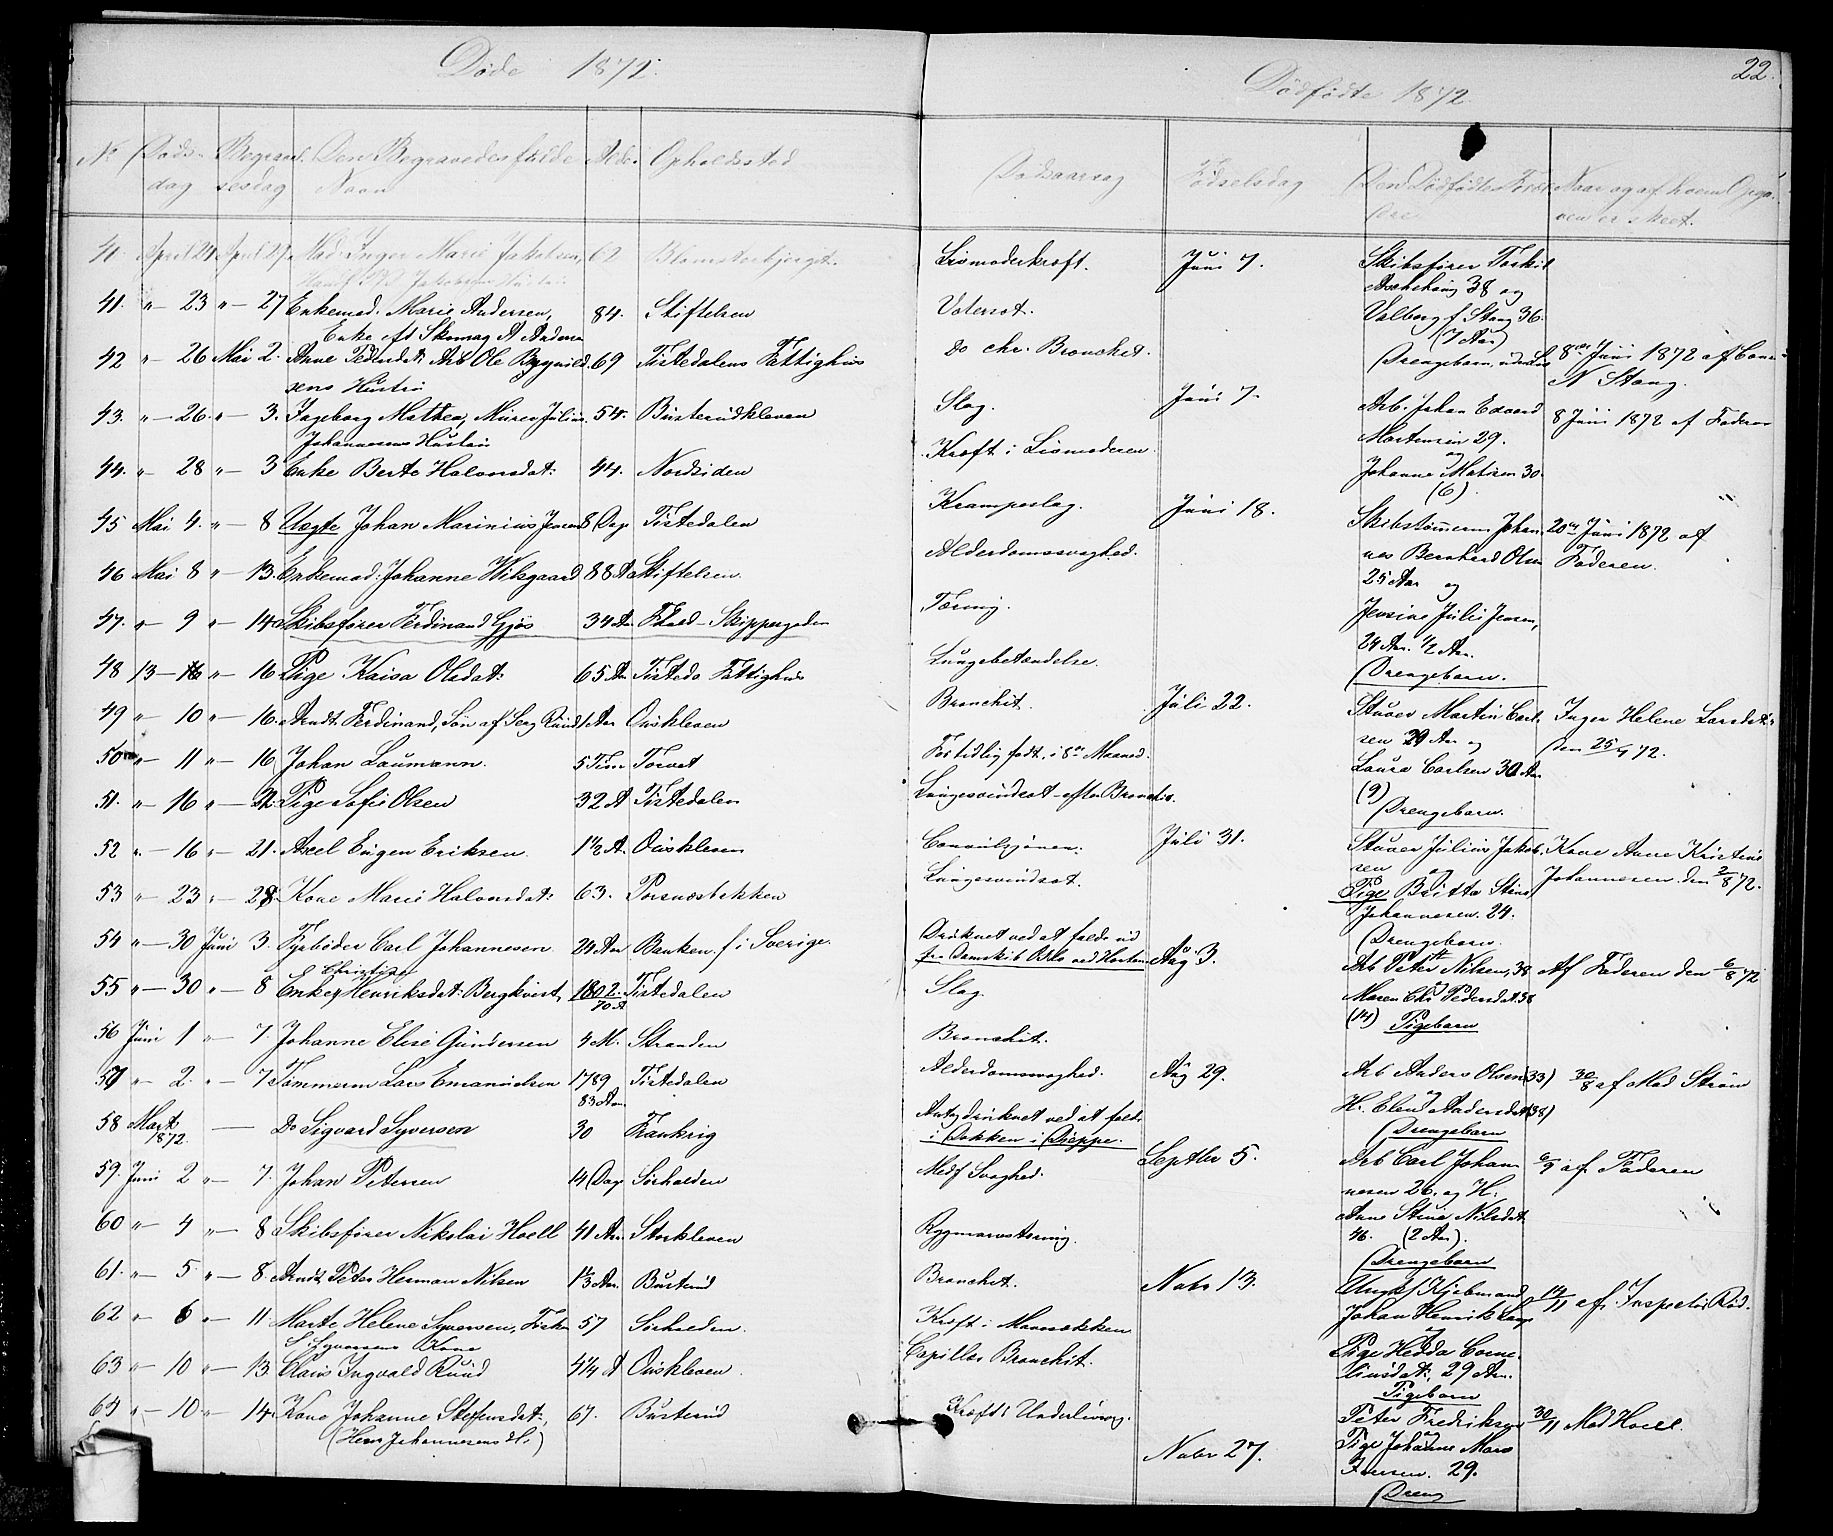 Døde 1872.
No Døds- Begravel- Den Begravedes fulde Alder Opholdssted
dag sesdag Navn
41. April 21 April 27 Mad. Inger Marie Jakobsen, 62 Blomsterbjerget.
41. " 23 " 27 Enkemad. Marie Andersen, 84. Stiftelsen
Enke af Skomag A Anders
42 " 26 Mai 2. Anne Pedersdat: Arb Ole 69 Tistedalens Fattighus
sens Hustru
43. " 26. " 3. Ingeborg Mathea, Murer Julius 54. Busterudkleven
Johannesens Hustru
44. " 28 " 3 Enke Berte Halvorsdat: 44. Nordsiden
45 Mai 4. " 8 Uægte Johan Marinius Jensen 8 Dage Tistedalen
46 Mai 8 " 13. Enkemad: Johanne Wilsgaard 88 A Stiftelsen.
47. " 9 " 14 Skibsfører Ferdinand Gjøs 34 Aar Skippergaden
48 13 " 16 Pige Kaisa Olsdat: 65 Aar Tisteda Fattighus
49 " 10 " 16. Arndt Ferdinand, Søn af Serg Ruud 1 Aar Ouskleven
50 " 11 " 16 Johan Laumann. 5 Timer Torvet
51. " 16 " 21. Pige Sofie Olsen 32 A Tistedalen
52 " 16 " 21. Axel Eugen Eriksen. 1½ A. Ouskleven
53 " 23 " 28 Kone Marie Halvorsdat: 63. Porsnesbekken
54 " 30 Juni 3. Fyrbøder Carl Johannesen 24 Aar Banken. f i Sverige.
Christine
55 " 30 " 8 Enke Henriksdat: Bergkvist 1802. Tistedalen
70 A
56 Juni 1 " 7. Johanne Elise Gundersen 4 M. Stranden
57 " 2. " 7 Tømmerm Lars Emanuelsen 1789 Tistedalen
83 Aar.
58 Marts — Do Sigvard Syversen 30 Frankrig
1872.
59. Juni 2 " 7. Johan Petersen 14 Dage Sørhalden
60 " 4 " 8 Skibsfører Nikolai Hoell 41 Aar. Storkleven
61. " 5 " 8. Arndt Peter Herman Nilsen 1⅓ Aar. Busterud
62 " 6 " 11. Marte Helene Syversen, 57 Sørhalden.
S. Syversens Kone
63 " 10 " 13. Claus Ingvald Ruud 4¼ A Ouskleven.
64 " 10 " 14. Kone Johanne Steffensdat:, 67. Busterud
(Hans Johannesens H.)
22.
Dødfødte 1872.
Dødsaarsag Fødselsdag Den Dødfødtes Foræl- Naar og af hvem Opga-
dre ven er skeet.
Livmoderkræft. Juni 7. Skibsfører Torkil
Aschehoug 38 og
Vatersot. Valborg f Stang 36.
(7 Aar)
Do chr. Bronchit. Drengebarn 8de Juni 1872 af
N Stang.
Slag. Juni 7. Arb. Johan Edvard 8 Juni 1872 af Faderen
Mortensen 29.
Kræft i Livmoderen. og
Johanne Matisen 30.
(6).
Krampeslag. Juni 18. Skibstømmerm Johan- 20de Juni 1872 af
Alderdomssvaghed. nes Bernhard Olsen Faderen.
25 Aar og
Tæring. Jensine Julie Jensen,
24 Aar. ½ Aar.
Lungebetændelse. Drengebarn.
Bronchit. Juli 22. Stuver Martin Carl- Inger Helene Larsdat:
sen 29 Aar og den 25/7 72.
For tidlig født, i 8de Maaned. Laura Carlsen 30 Aar
Lungesvindsot efter Bronchit. (9)
Drengebarn.
Juli 31. Stuver Julius Jakob- Kone Anne Kristine
sen og Johannesen. den 2/8 72.
Lungesvindsot. Pige Britta Stine
Johannesen. 24.
Druknet ved at falde ud Drengebarn.
fra Dampskib Oslo ved Horten Aug 3. Arb Peter Nilsen, 38 Af Faderen den 6/8 72
Slag. Maren Chr Pedersdat: 38
(14) Pigebarn
Bronchit.
Alderdomssvaghed. Aug 29. Arb Anders Olsen (33) 30/8 af Mad Strøm
og
Antag druknet ved at falde H. Elena Andersdat (38)
i Dokken i Dieppe. Drengebarn
Septbr 5. Arb Carl Johan- 6/9 af Faderen
Medf Svaghed. nesen 26. og H.
Anne Stine Nilsdat
Rygmarvstæring. 46. (2 Aar).
Drengebarn
Bronchit. Novbr 13. Ungk Kjøbmand 14/11 af Inspector Rød.
Kræft i Mavesækken Johan Henrik
og
Capillær Bronchit. Pige Hedda Corne-
liusdat, 29 Aar.
Pigebarn
Kræft i Underlivet. Peter Fredriksen 30/11 Mad Hoell.
og
Novbr 27. Pige Johanne
Jensen. 29.
Dreng